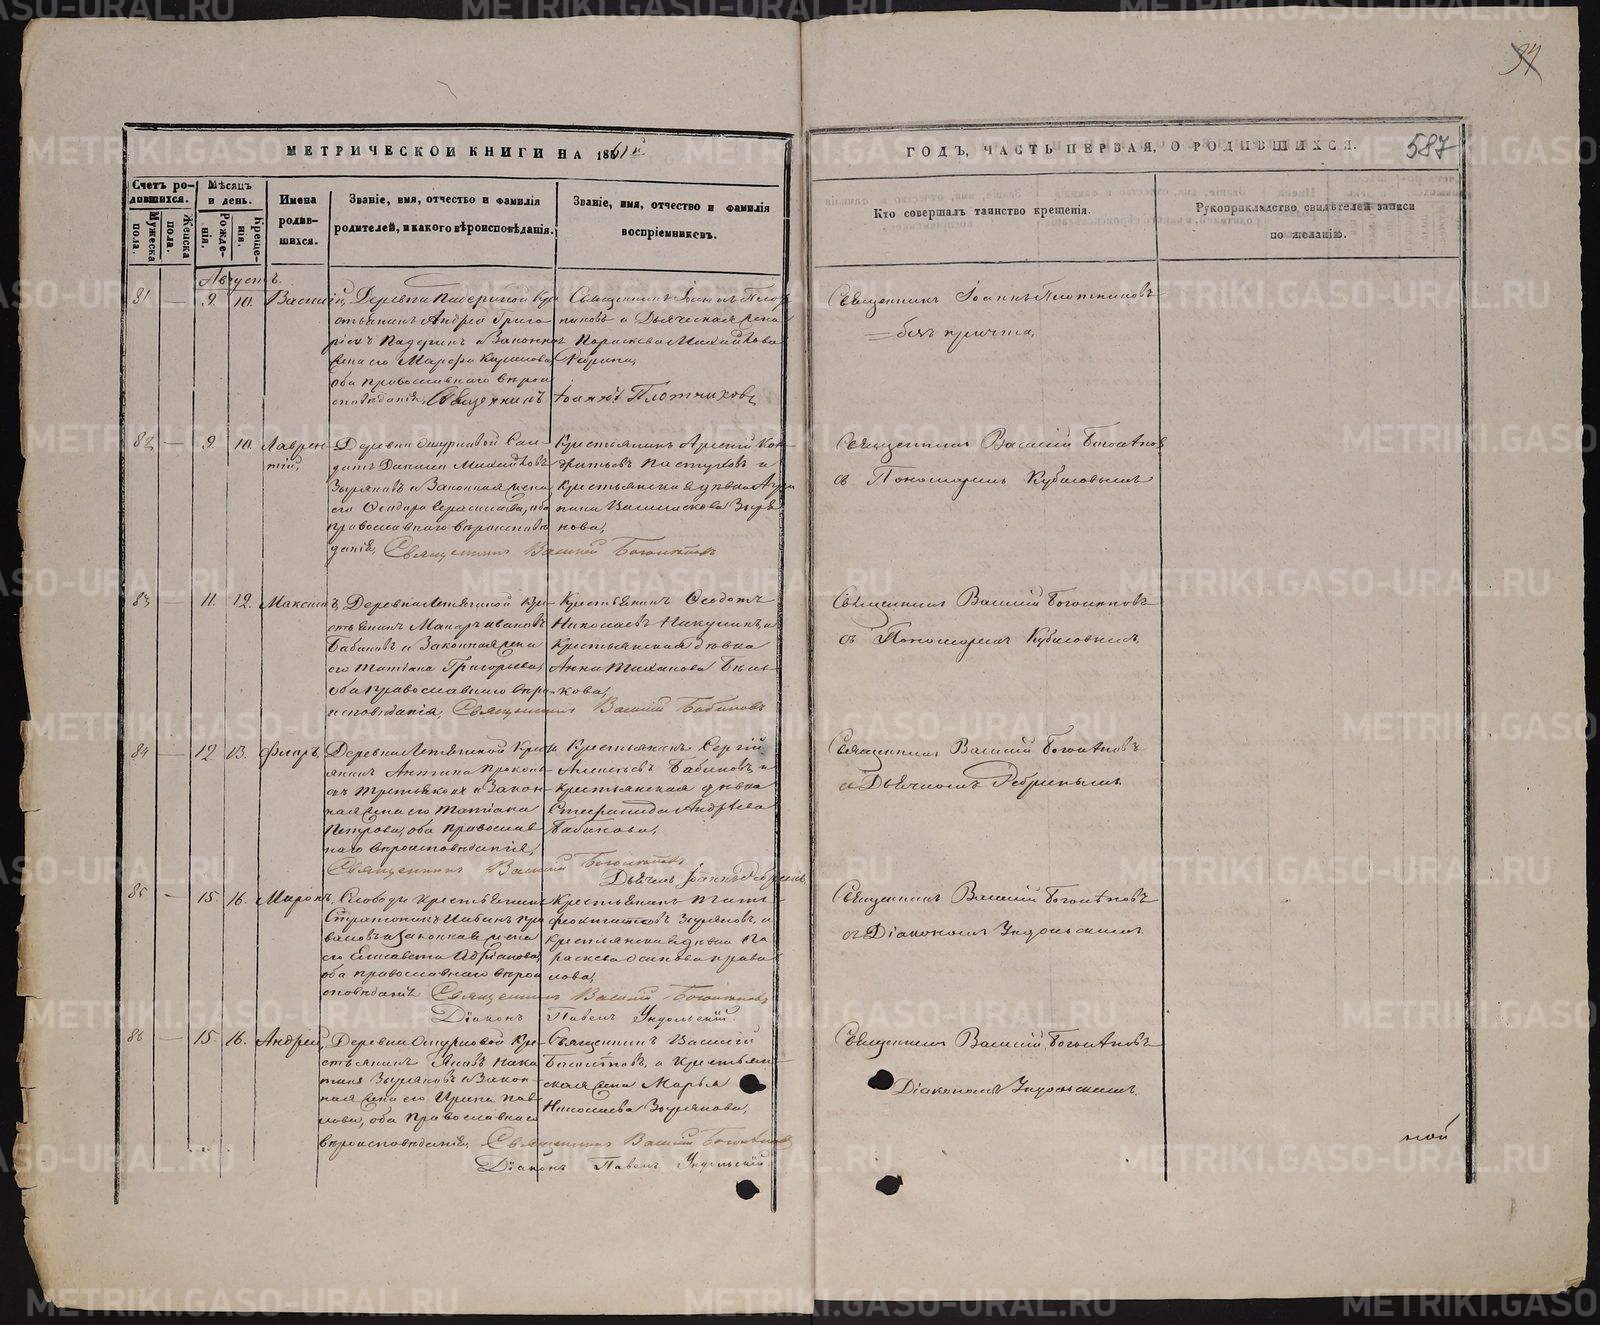 METRIKI.GASO-URAL.RU
34
МЕТРИЧЕСКОЙ КНИГИ НА 1861й
ГОДЪ, ЧАСТЬ ПЕРВАЯ, О РОДИВШИХСЯ.
587
Счетъ родившихся.
Мужеска пола.
Женска пола.
Мѣсяцъ и день.
Рожденія.
Крещенія.
Имена родившихся.
Званіе, имя, отчество и фамилія родителей, и какого вѣроисповѣданія.
Званіе, имя, отчество и фамилія воспріемниковъ.
Кто совершалъ таинство крещенія.
Рукоприкладство свидѣтелей записи по желанію.
Августъ.
81 — 9. 10. Василій,
Деревни Падериной Кре-
стьянинъ Андрей Григо-
рьевъ Падеринъ и Законная
жена его Марѳа
оба православнаго вѣрои-
сповѣданія, Священникъ Іоаннъ Плотниковъ
Священникъ Іоаннъ Плот-
никовъ и Дьяческая жена
Параскева Михайлова
Ребрина,
Священникъ Іоаннъ Плотниковъ
безъ причта,
82 — 9. 10. Лаврен-
тій,
Деревни Ошурковой Сол-
датъ Даниилъ Михайловъ
Зыряновъ и Законная жена
его Ѳеодора Герасимова, оба
православнаго вѣроисповѣ-
данія, Священникъ Василій Боголѣповъ
Крестьянинъ
Пастуховъ и
крестьянская дѣвка Агри-
пина Зыря-
нова,
Священникъ Василій Боголѣповъ
съ Пономаремъ Кубасовымъ
83 — 11. 12. Максимъ,
Деревни Летягиной Кре-
стьянинъ Макаръ Ивановъ
Бабиновъ и Законная жена
его Татіана Григорьева,
оба православнаго вѣро-
исповѣданія, Священникъ Василій
Крестьянинъ Ѳеодотъ
Николаевъ Никулинъ, и
Крестьянская дѣвка
Анна Тиханова Бѣль-
кова,
Священникъ Василій Боголѣповъ
съ Пономаремъ Кубасовымъ
84 — 12 13. Флоръ,
Деревни Летягиной Кресть-
янинъ Антипа Прокопь-
евъ Третьяковъ и Закон-
ная жена его Татіана
Петрова, оба православ-
наго вѣроисповѣданія,
Священникъ Василій Боголѣповъ
Дьячекъ Іоаннъ Ребринъ
Крестьянинъ Сергій
Алексѣевъ Бабиновъ, и
крестьянская дѣвка
Стефанида Андрѣева
Бабинова,
Священникъ Василій Боголѣповъ
съ Дьячкомъ Ребринымъ
85 — 15 16. Миронъ,
Слободы Крестьянинъ
Стратоникъ
и законная жена
его Елисавета Адріанова,
оба православнаго вѣрои-
сповѣданія Священникъ Василій Боголѣповъ
Діаконъ Павелъ Ундольскій
Крестьянинъ Титъ
Зыряновъ, и
крестьянская дѣвка Па-
раскева Осипова
Священникъ Василій Боголѣповъ
съ Діакономъ Ундольскимъ
86 — 15. 16. Андрей,
Деревни Ошурковой Кре-
стьянинъ Яковъ Ники-
тинъ Зыряновъ и Закон-
ная жена его Ирина Пав-
лова, оба Православнаго
вѣроисповѣданія, Священникъ Василій Боголѣповъ
Діаконъ Павелъ Ундольскій
Священникъ Василій
Боголѣповъ, и Крестьян-
ская жена Марья
Николаева Зырянова,
Священникъ Василій Боголѣповъ
Діакономъ Ундольскимъ.